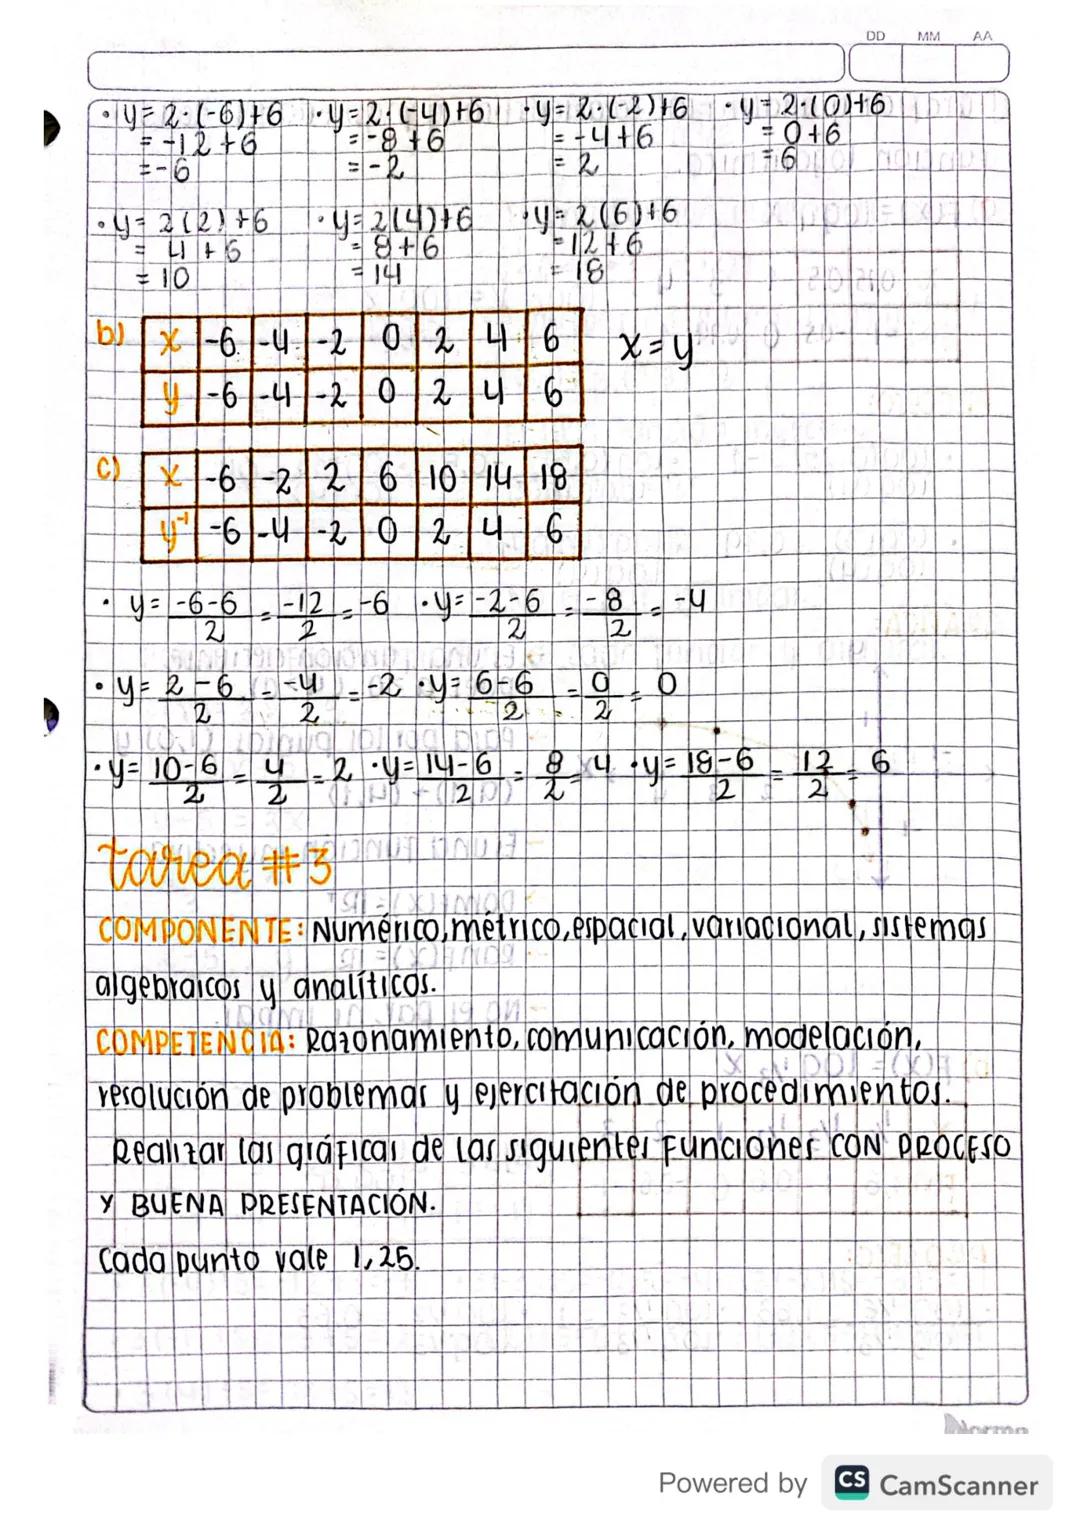 DD MM AA
· y= 2·(-6)+6 · y=2·(-4)+6 · y= 2·(-2)+6 · y= 2·(0)+6
= -12+6 =-8+6 = -4+6 = 0+6
=-6 =-2 = 2 =6
· y= 2(2)+6 · y= 2(4)+6 · y= 2(6)+6
= 4+6 = 8+6 =12+6
= 10 = 14 = 18
b) x -6 -4 -2 0 2 4 6 x=y
y -6 -4 -2 0 2 4 6
c) x -6 -2 2 6 10 14 18
y⁻¹ -6 -4 -2 0 2 4 6
· y= -6-6/2 = -12/2 = -6 · y= -2-6/2 = -8/2 = -4
· y= 2-6/2 = -4/2 = -2 · y= 6-6/2 = 0/2 = 0
· y= 10-6/2 = 4/2 = 2 · y= 14-6/2 = 8/2 = 4 · y= 18-6/2 = 12/2 = 6
tarea #3
COMPONENTE: Numérico, métrico, espacial, variacional, sistemas
algebraicos y analíticos.
COMPETENCIA: Razonamiento, comunicación, modelación,
resolución de problemas y ejercitación de procedimientos.
Realizar las gráficas de las siguientes funciones CON PROCESO
Y BUENA PRESENTACIÓN.
Cada punto vale 1,25.
Norma
Powered by CS CamScanner